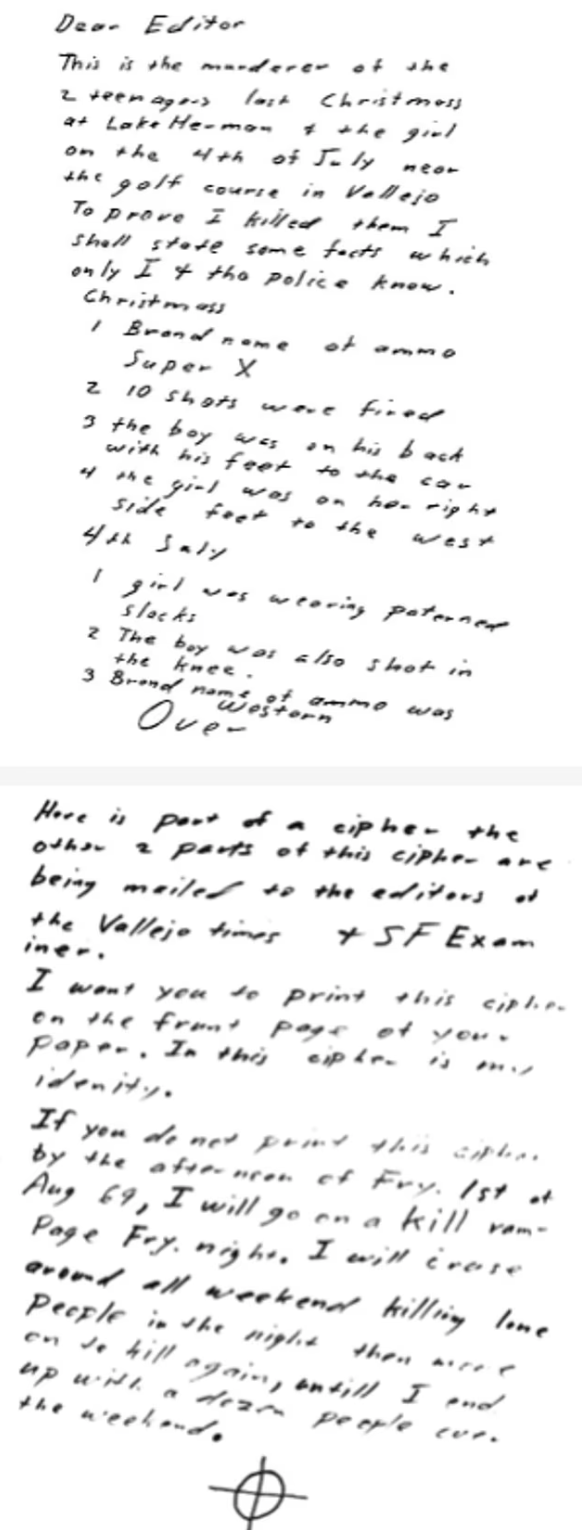 Dear Editor
This is the murderer of the
2 teenagers last Christmass
at Lake Herman & the girl
on the 4th of July near
the golf course in Vallejo
To prove I killed them I
shall state some facts which
only I & the police know.
Christmass
1 Brand name of ammo
Super X
2 10 shots were fired
3 the boy was on his back
with his feet to the car
4 the girl was on her right
side feet to the west
4th July
1 girl was wearing paterned
slacks
2 The boy was also shot in
the knee.
3 Brand name of ammo was
western
Over
Here is part of a cipher the
other 2 parts of this cipher are
being mailed to the editors of
the Vallejo times & SF Exam
iner.
I want you to print this cipher
on the frunt page of your
paper. In this cipher is my
idenity.
If you do not print this cipher
by the afternoon of Fry. 1st of
Aug 69, I will go on a kill ram-
Page Fry. night. I will cruse
around all weekend killing lone
people in the night then move
on to kill again, untill I end
up with a dozen people over
the weekend.